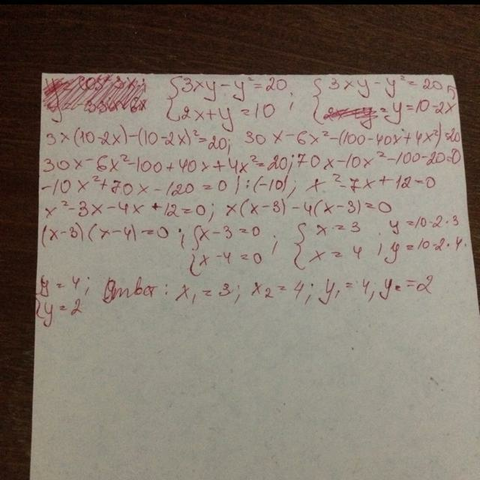 {3xy-y²=20 ; {3xy-y²=20;
{2x+y=10 {y=10-2x
3x(10-2x)-(10-2x)²=20; 30x-6x²-(100-40x+4x²)=20
30x-6x²-100+40x+4x²=20; 70x-10x²-100-20=0
-10x²+70x-120=0 |:(-10); x²-7x+12=0
x²-3x-4x+12=0; x(x-3)-4(x-3)=0
(x-3)(x-4)=0; {x-3=0; {x=3 y=10-2·3
{x-4=0; {x=4; y=10-2·4.
{y=4; Ответ: x₁=3; x₂=4; y₁=4, y₂=2
{y=2